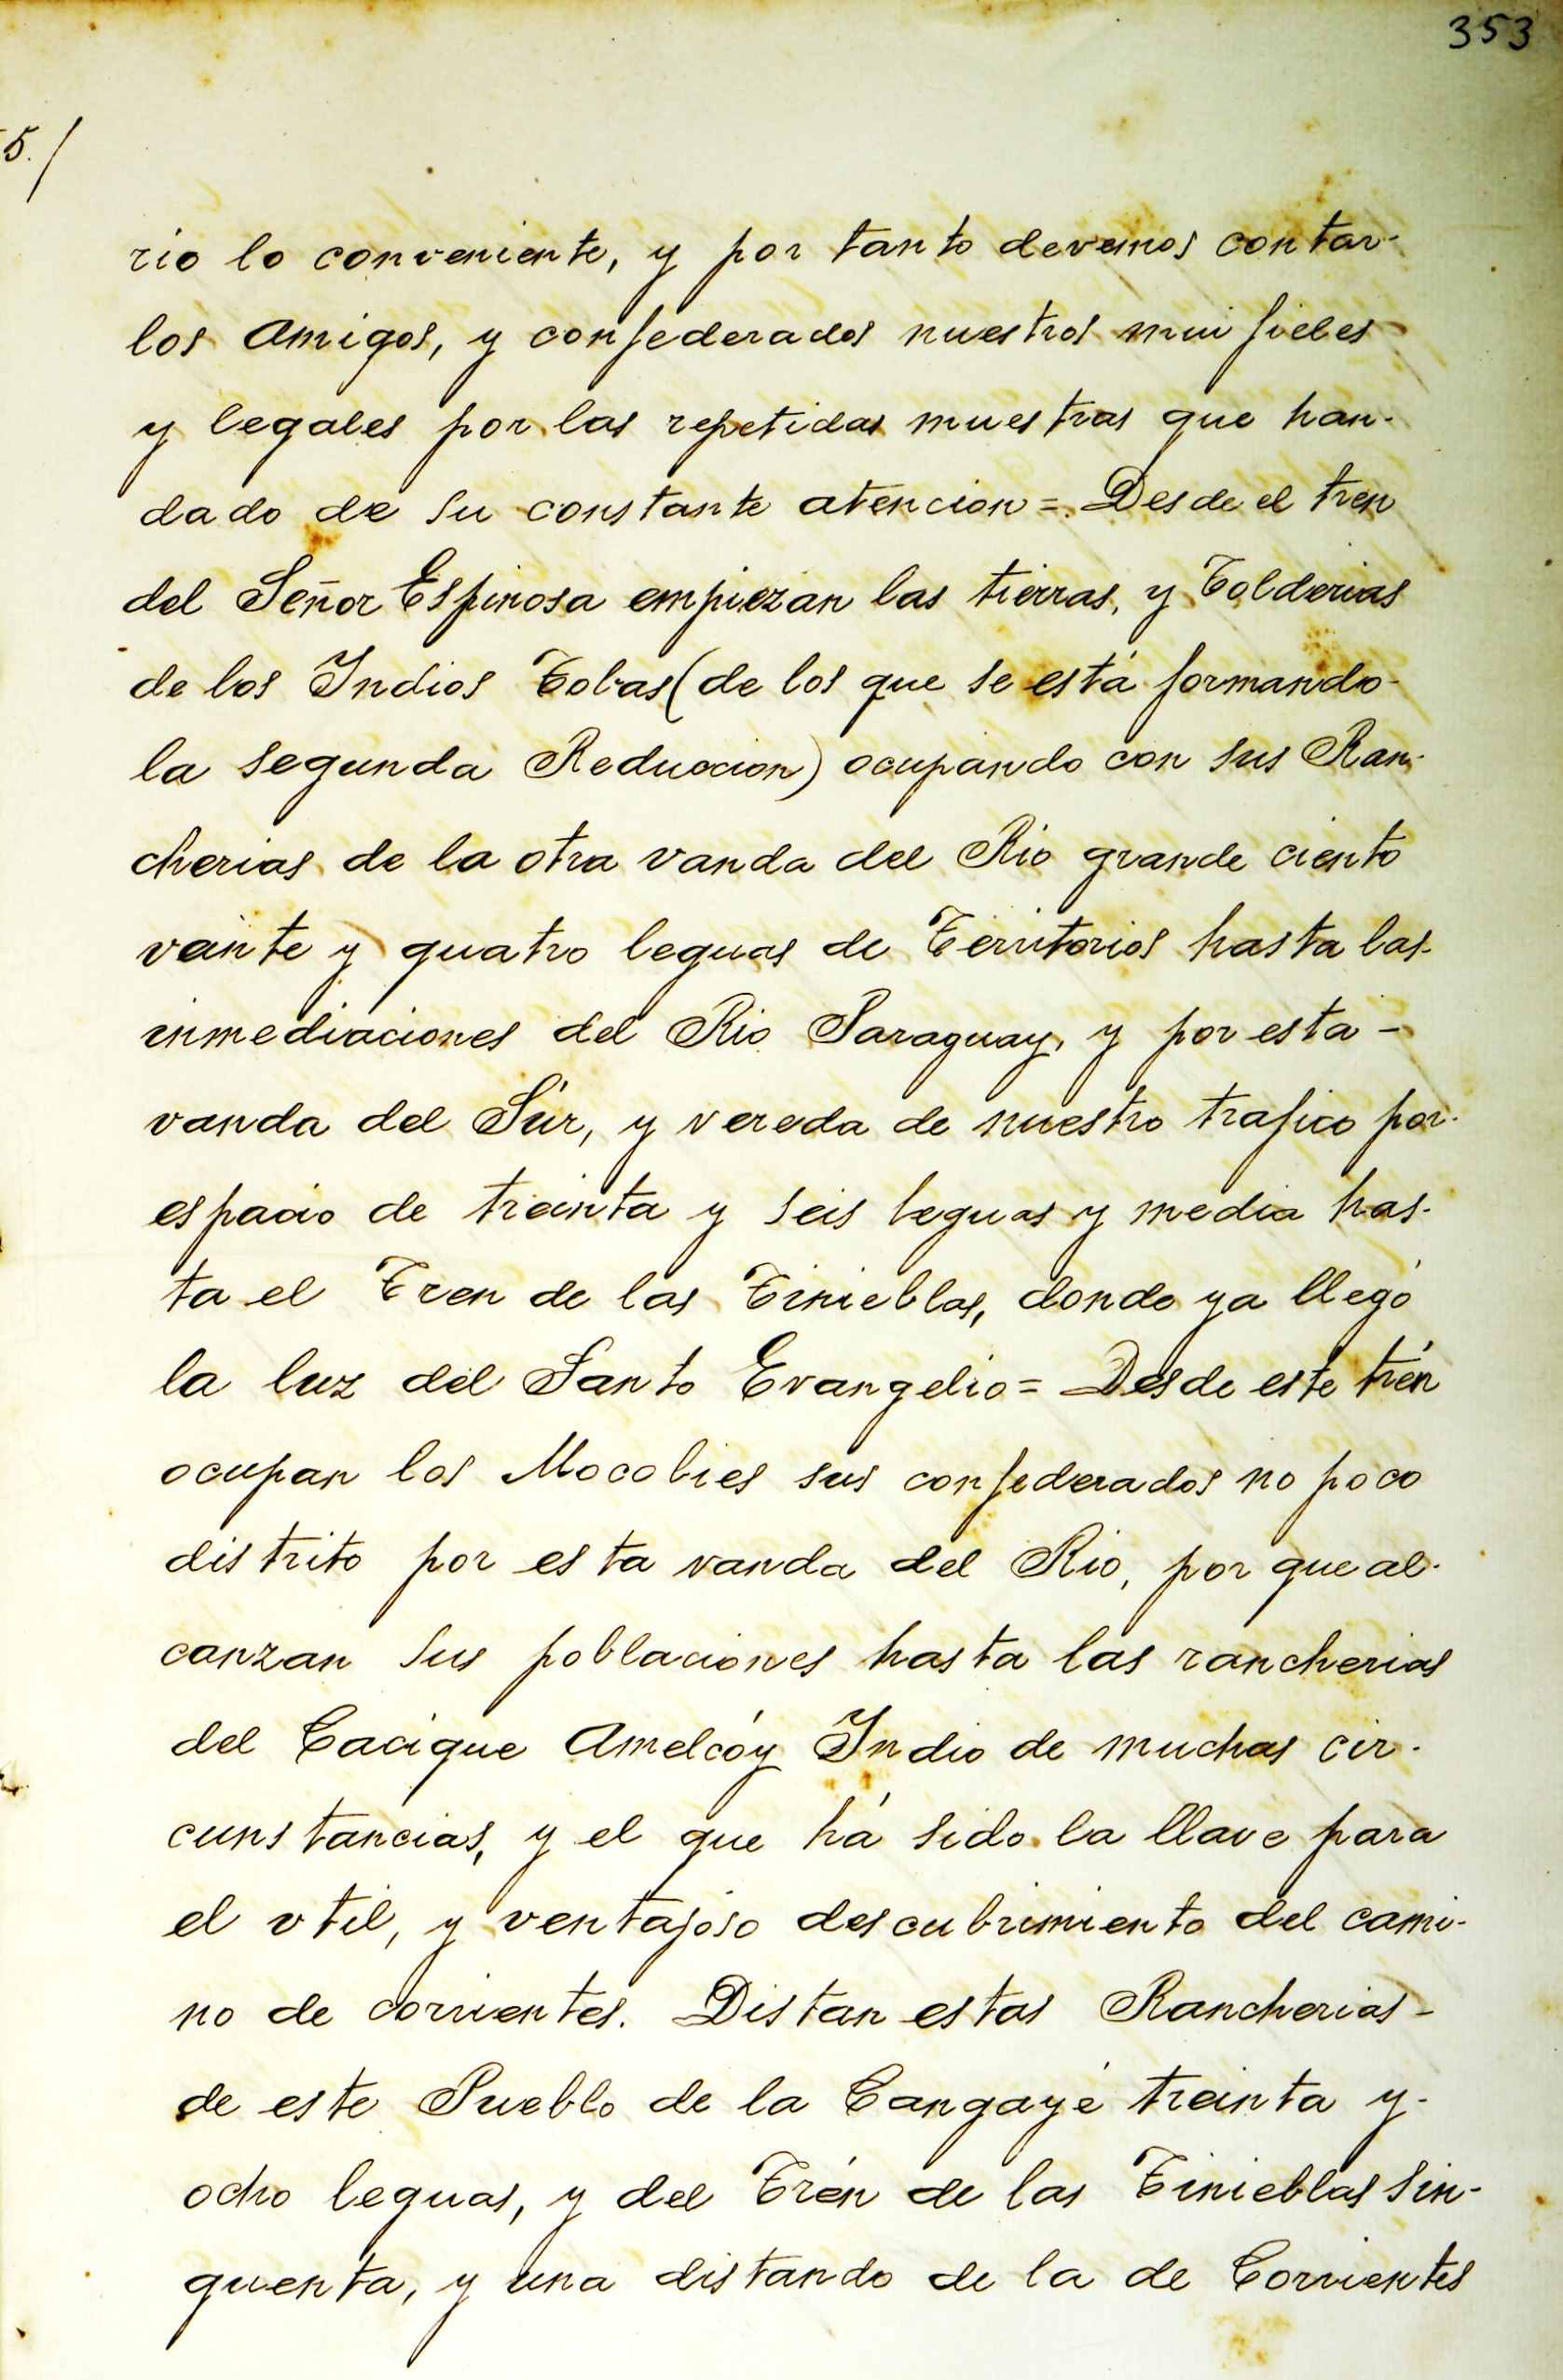 353
5./
rio lo conveniente, y por tanto devemos contar-
los amigos, y confederados nuestros mui fieles
y legales por las repetidas muestras que han-
dado de su constante atencion=. Desde el tren
del Señor Espinosa empiezan las tierras, y Tolderias
de los Indios Tobas (de los que se está formando-
la segunda Reduccion) ocupando con sus Ran-
cherias de la otra vanda del Rio grande ciento
veinte y quatro leguas de Territorios hasta las-
inmediaciones del Rio Paraguay, y por esta -
vanda del Súr, y vereda de nuestro trafico por-
espacio de treinta y seis leguas y media has-
ta el Tren de las Tinieblas, donde ya llegó
la luz del Santo Evangelio= Desde este trén
ocupan los Mocobies sus confederados no poco
distrito por esta vanda del Rio, por que al-
canzan sus poblaciones hasta las rancherias
del Cacique Amelcóy Indio de muchas cir-
cunstancias, y el que há sido la llave para
el vtil, y ventajoso descubrimiento del cami-
no de corrientes. Distan estas Rancherias-
de este Pueblo de la Cangayé treinta y-
ocho leguas, y del Trén de las Tinieblas sin-
quenta, y una distando de la de Corrientes